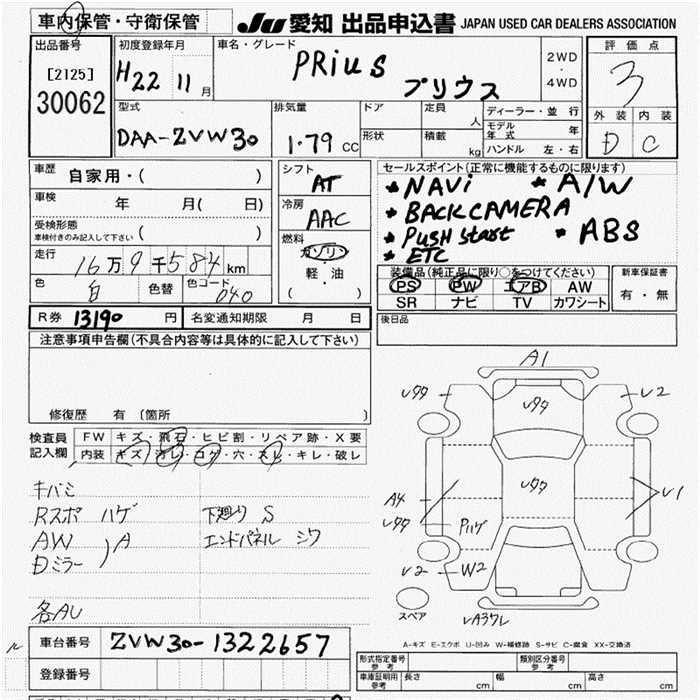 車内保管・守衛保管
JU 愛知 出品申込書 JAPAN USED CAR DEALERS ASSOCIATION
出品番号
[2125]
30062
初度登録年月
H22 11月
車名・グレード
PRiUS
プリウス
2WD
・
4WD
評価点
3
外装 内装
D C
型式
DAA-ZVW30
排気量
1.79 CC
ドア
形状
定員 人
積載 kg
ディーラー・並行
モデル年式 年
ハンドル 左・右
車歴 自家用・( )
車検 年 月( 日)
受検形態
車検付きのみ記入して下さい ( )
走行 16万9千584km
色 白 色替 色コード 040
シフト
AT
冷房
AAC
燃料
ガソリン
軽・油
( )
セールスポイント(正常に機能するものに限ります)
★NAVi ★A/W
★BACKCAMERA
★PUSH Start ★ABS
★ETC
装備品(純正品に限り○をつけてください)
PS PW エアB AW
SR ナビ TV カワシート
新車保証書
有・無
R券 13190 円 名変通知期限 月 日
後日品
注意事項申告欄(不具合内容等は具体的に記入して下さい)
修復歴 有 (箇所 )
検査員記入欄
FW キズ・飛石・ヒビ割・リペア跡・X要
内装 キズ・汚レ・コゲ・穴・スレ・キレ・破レ
キバミ
Rスポ ハゲ 下廻り S
AW エンドパネル シワ
Dミラー ) A
各AU
A1
U2
A4
Pハゲ
U1
U2
W2
スペア
A-キズ E-エクボ U-凹み W-補修跡 S-サビ C-腐食 XX-交換済
車台番号 ZVW30-1322657
登録番号
形式指定番号 参考
類別区分番号 参考
車庫証明用 参考
長さ cm 幅 cm 高さ cm